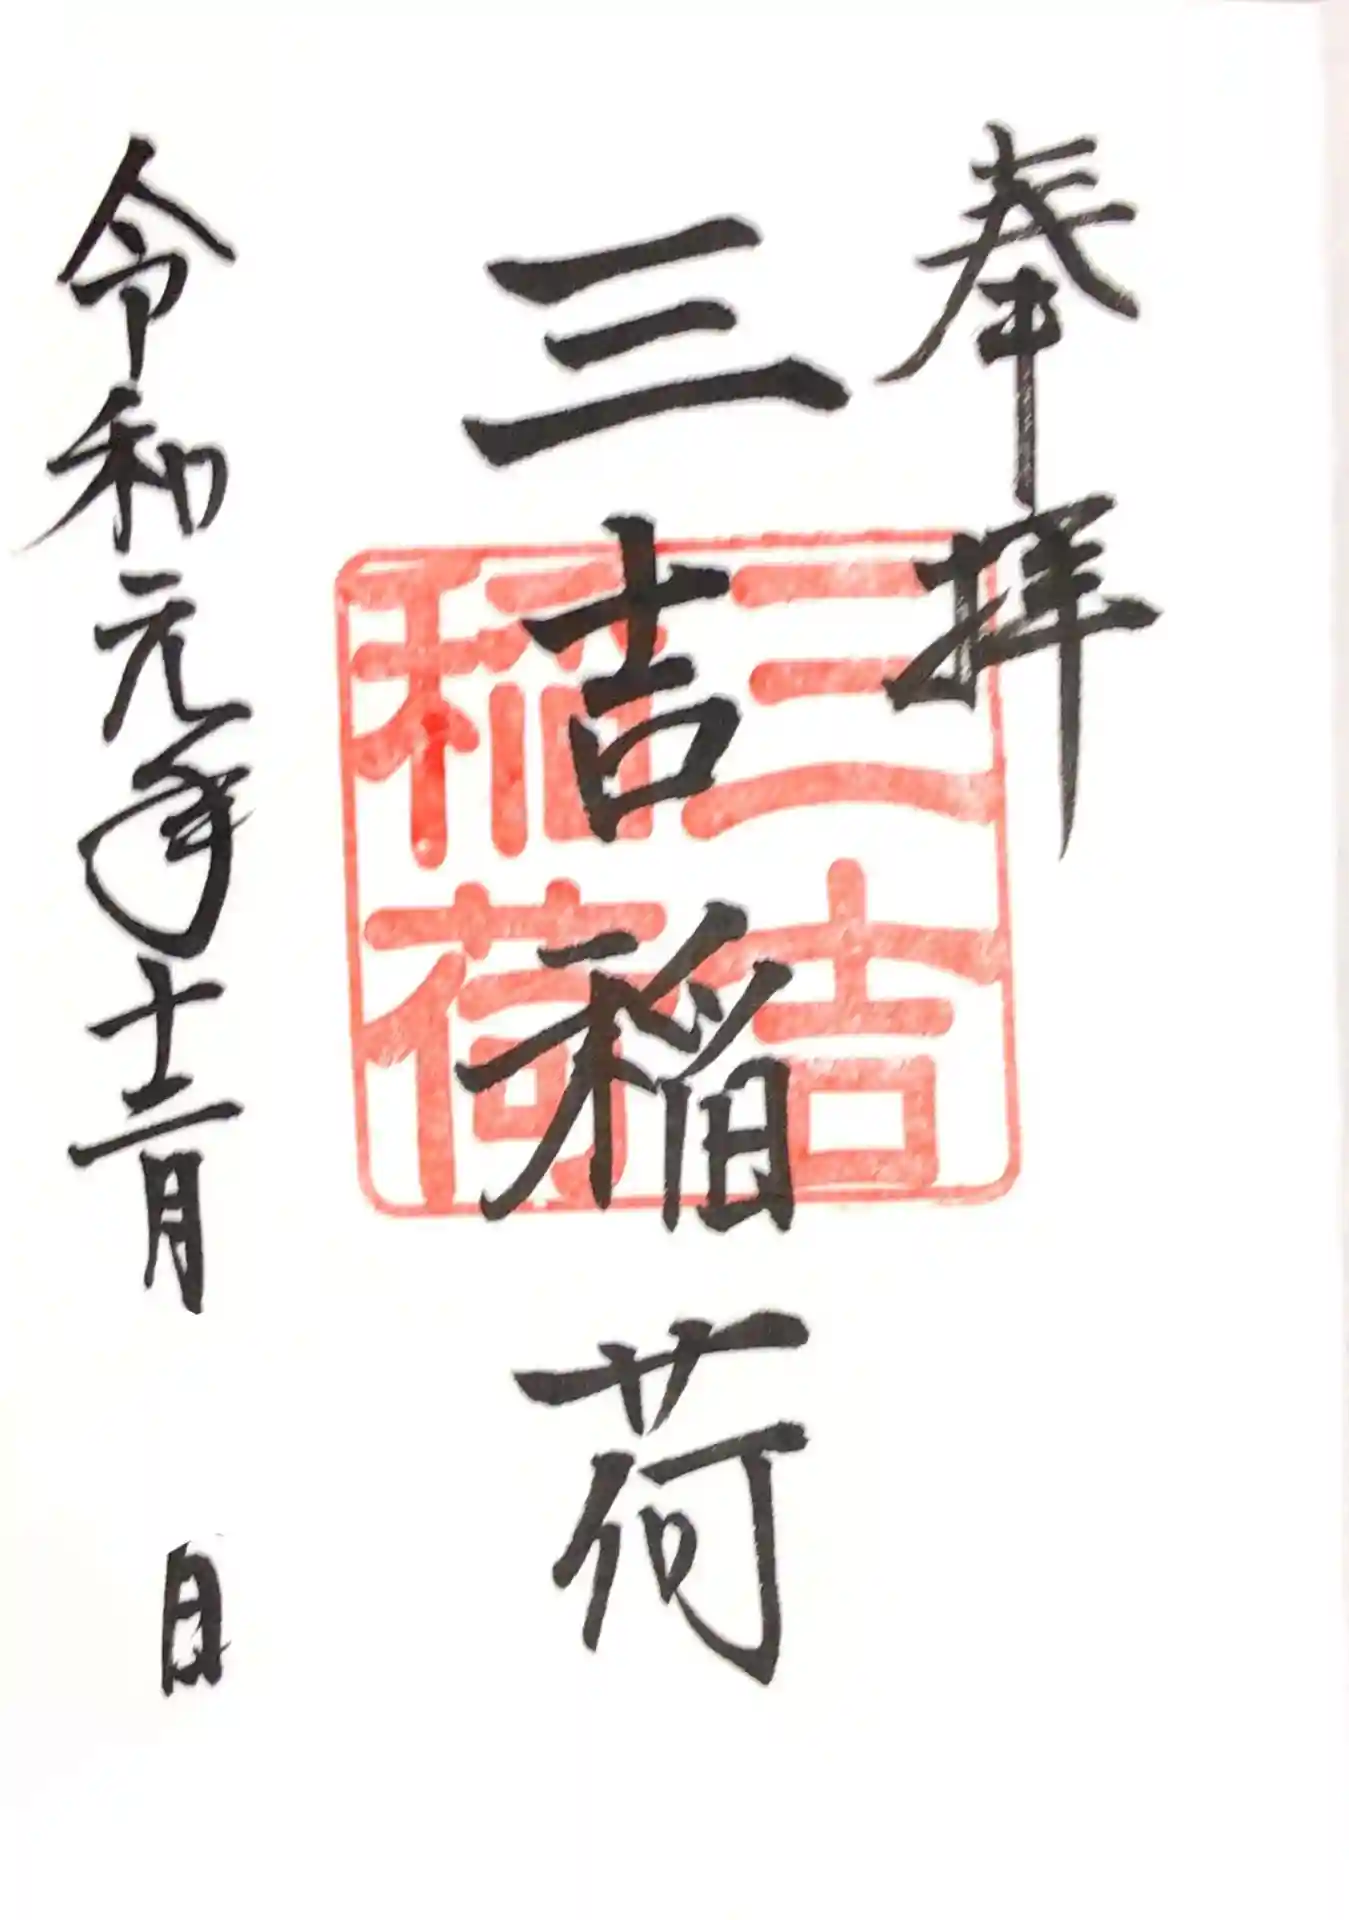 奉拝
三吉稲荷
三吉
稲荷
令和元年十二月 日